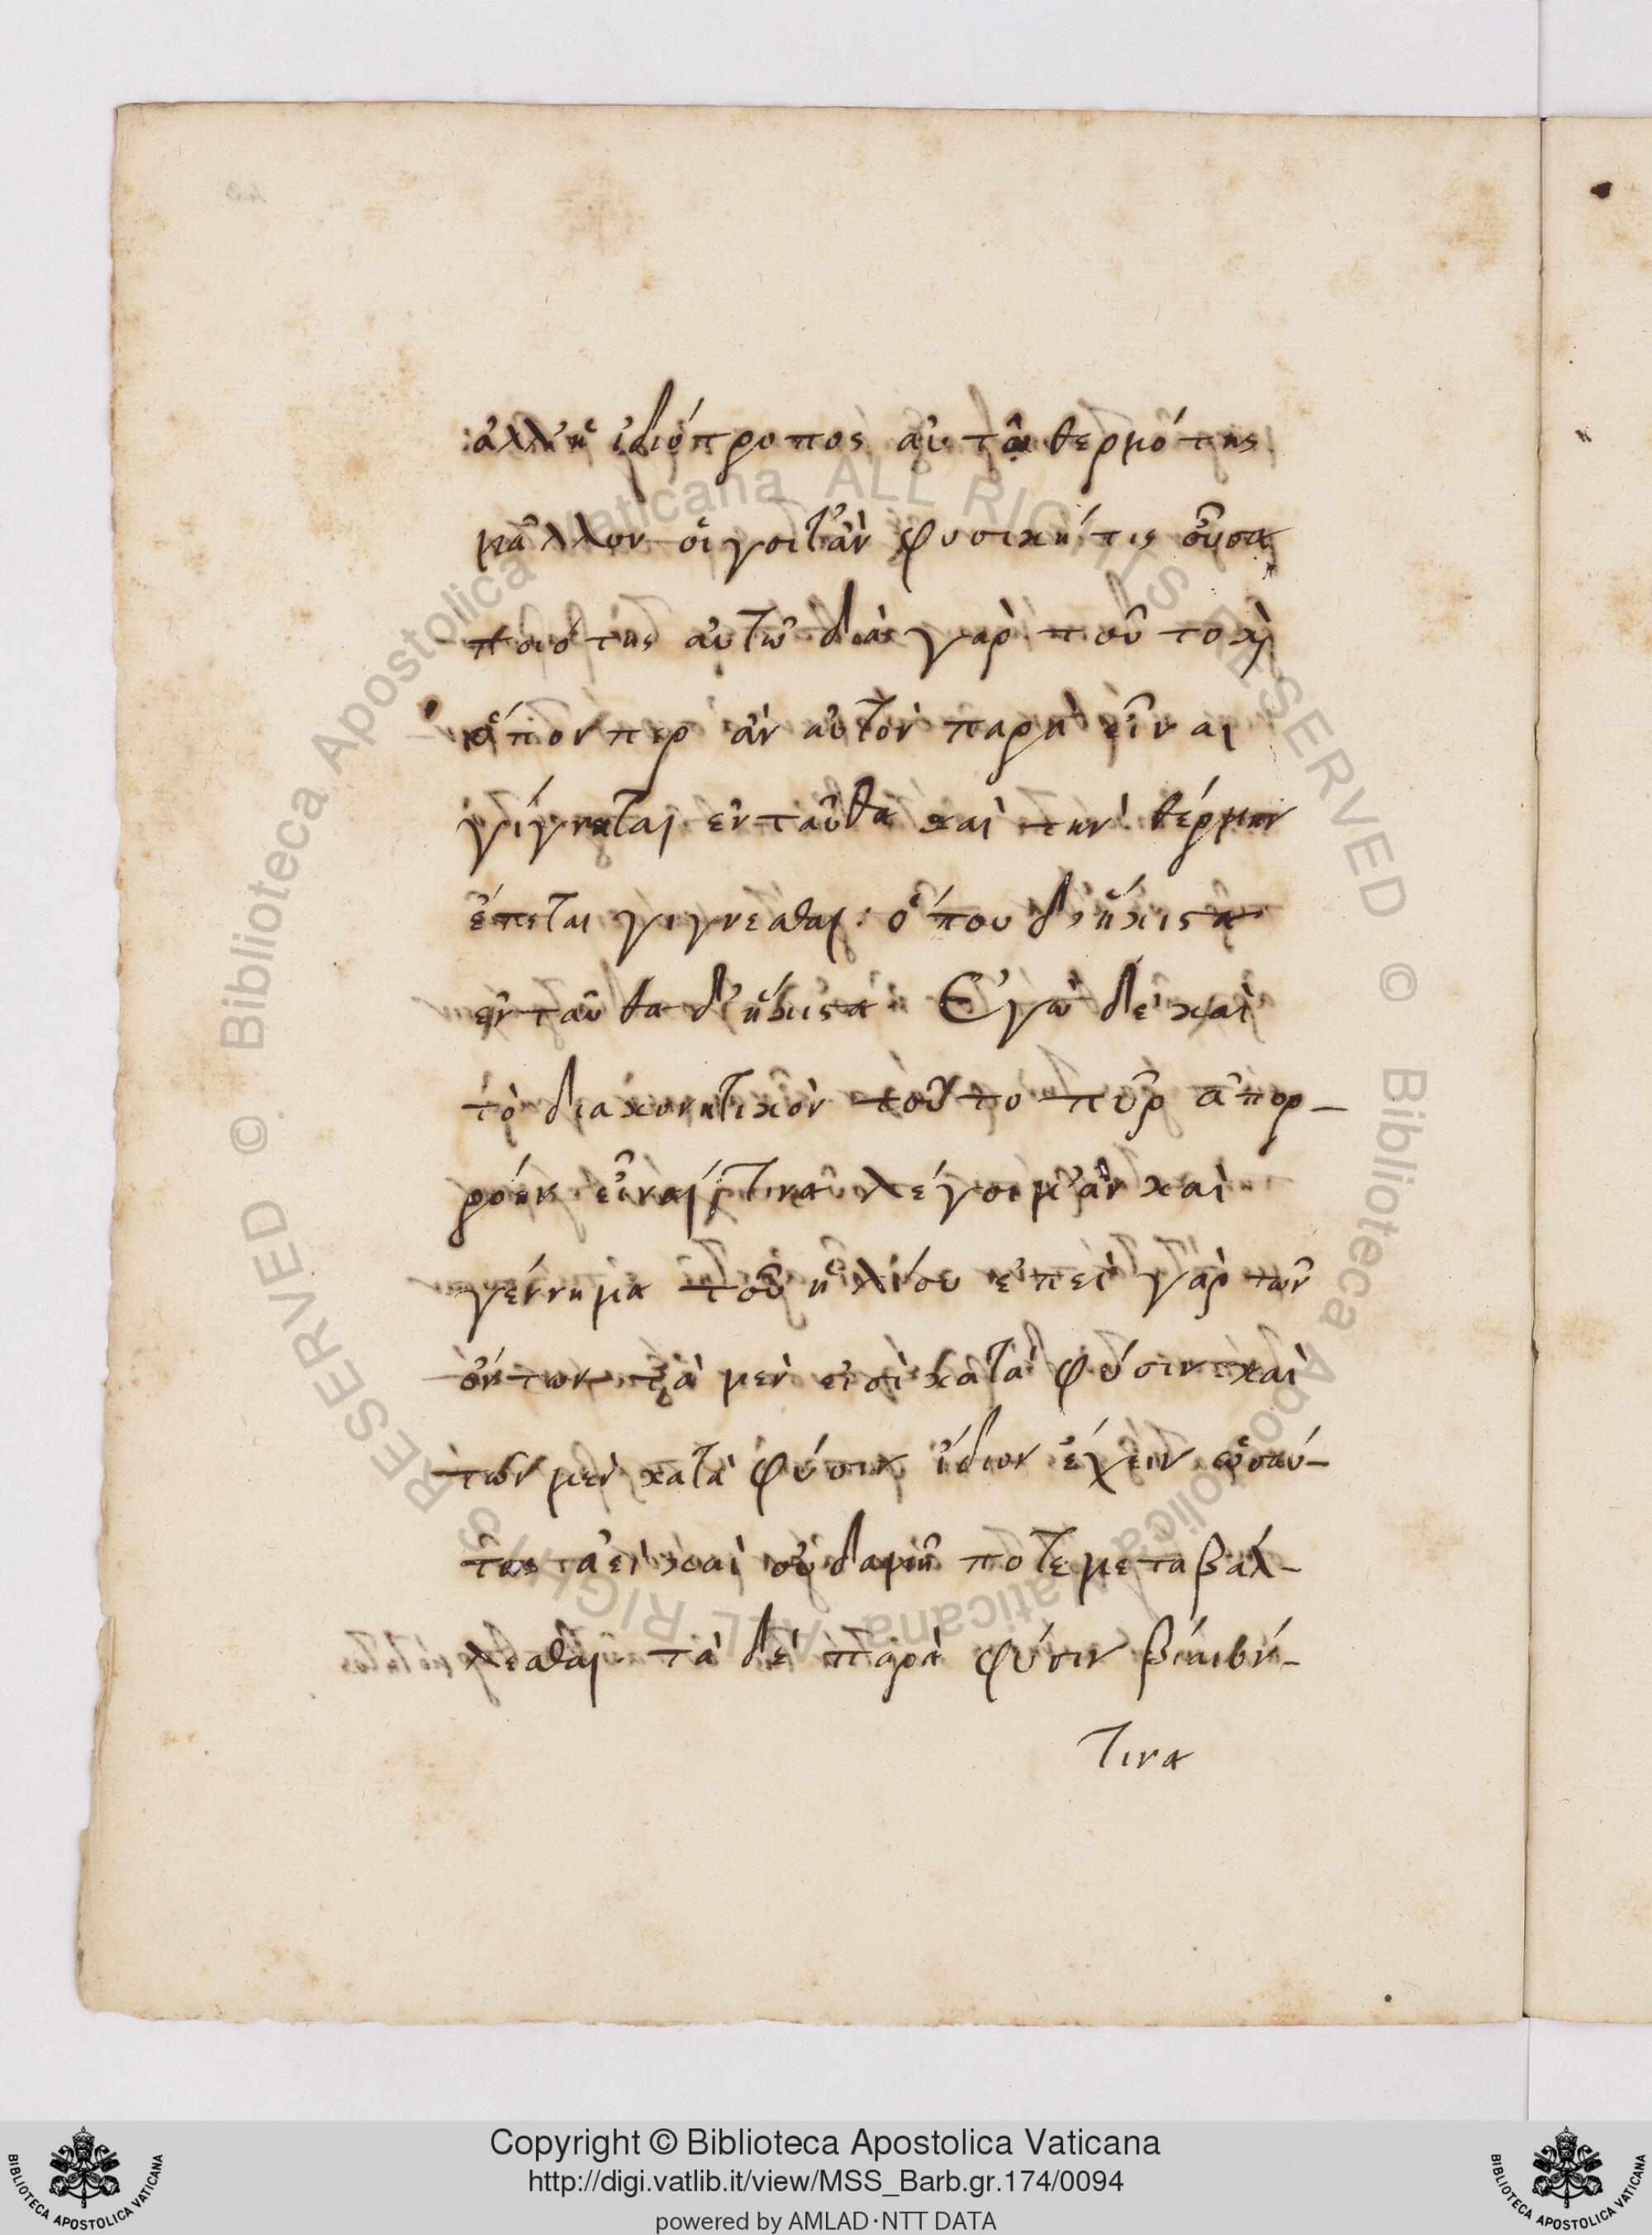 ἀλλ' ἡ ἰδιότροπος αὐτοῦ θερμότης
μᾶλλον οἴγοιτ' ἂν φυσικήτις οὖσα
ποιότης αὐτῷ διὰ γὰρ τοῦτο καὶ
ὅπόνπερ ἂν αὐτὸν παρῆ εἶναι
γίγνηται ἐνταῦθα καὶ τὴν θέρμην
ἕπεται γιγνεσθαι: ὅπου δ' ἥκιστα
ἐνταῦθα δ' ἥκιστα. Ἐγὼ δὲ καὶ
τὸ διακονητικὸν τοῦτο πῦρ ἀπορ-
ρόην εἶναί τινα λέγοιμ' ἂν καὶ
γέννημα τοῦ ἡλίου ἐπεὶ γὰρ τῶν
ὄντων τὰ μὲν εἰσὶ κατὰ φύσιν καὶ
τῶν μὲν κατὰ φύσιν ἴδιον ἔχειν ὡσαύ-
τως τ' ἀεὶ καὶ οὐδαμῆ ποτε μεταβάλ-
λεσθαι τὰ δὲ παρὰ φύσιν βίαιόν-
τινα
Copyright © Biblioteca Apostolica Vaticana
http://digi.vatlib.it/view/MSS_Barb.gr.174/0094
powered by AMLAD·NTT DATA